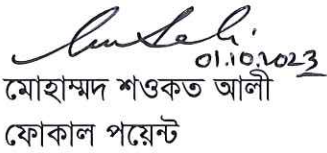 01.10.2023
মোহাম্মদ শওকত আলী
ফোকাল পয়েন্ট